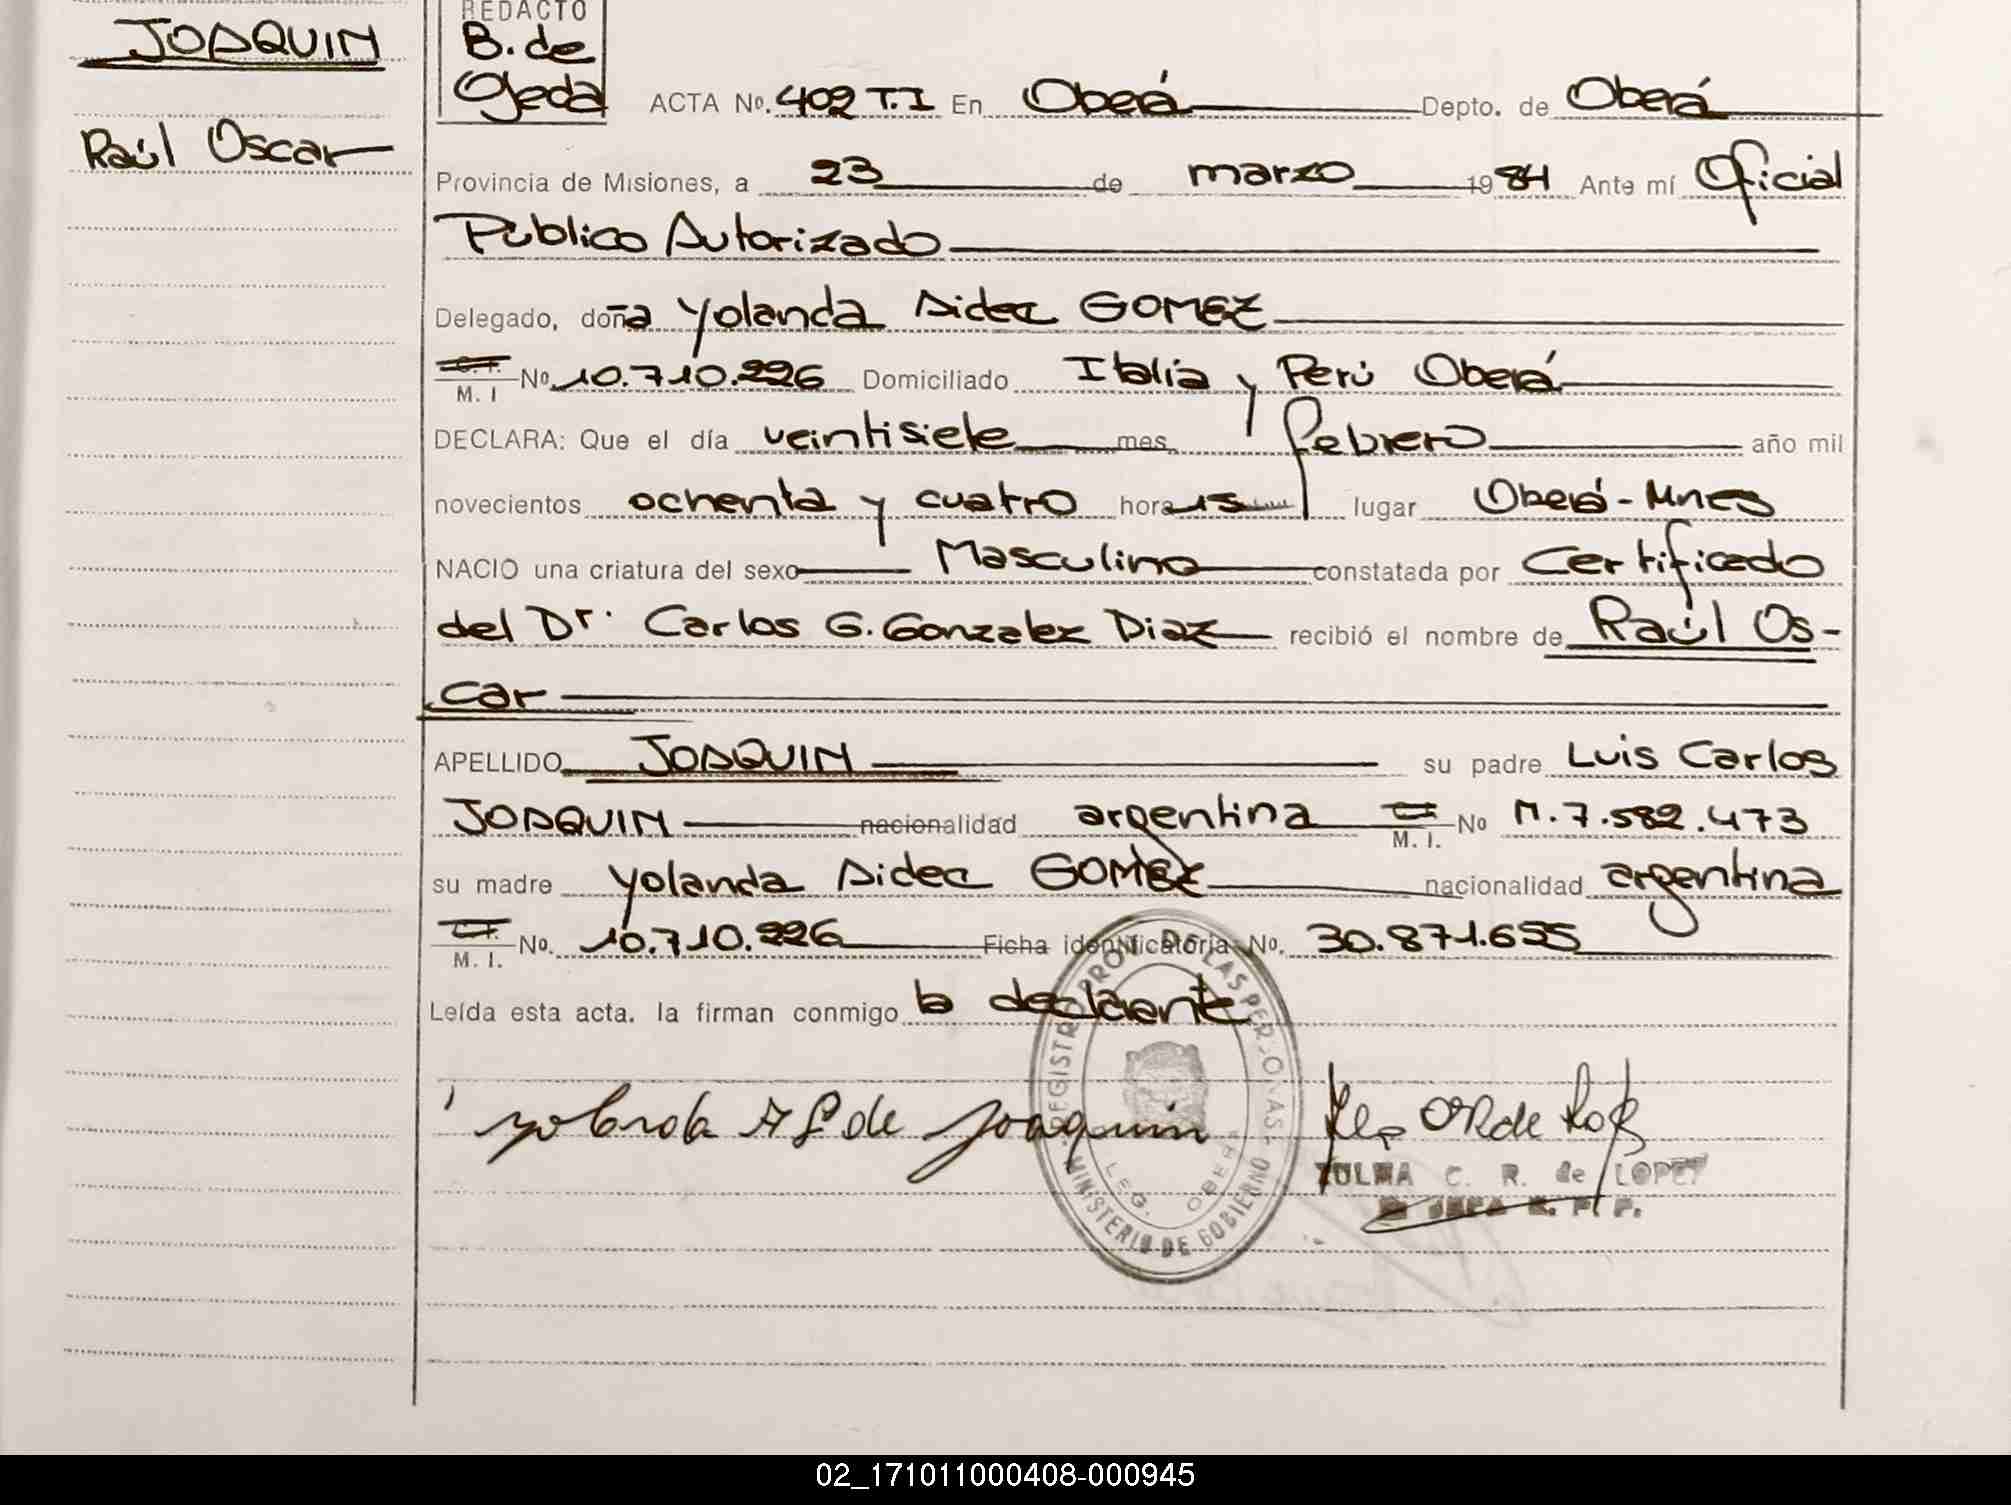 JOAQUIN
Raúl Oscar
REDACTO
B. de
Ojeda
ACTA No. 402 T.I En Oberá Depto. de Oberá
Provincia de Misiones, a 23 de marzo 1984 Ante mí Oficial
Público Autorizado
Delegado, doña Yolanda Aidee GOMEZ
C.I.
M. I No. 10.710.226 Domiciliado Italia y Perú Oberá
DECLARA: Que el día veintisiete mes febrero año mil
novecientos ochenta y cuatro hora 15 lugar Oberá-Mnes
NACIO una criatura del sexo Masculino constatada por Certificado
del Dr. Carlos G. Gonzalez Diaz recibió el nombre de Raúl Os-
car
APELLIDO JOAQUIN su padre Luis Carlos
JOAQUIN nacionalidad argentina C.I. M. I. No M.7.582.473
su madre Yolanda Aidee GOMEZ nacionalidad argentina
C.I.
M. I. No. 10.710.226 Ficha identificatoria No. 30.871.655
Leída esta acta. la firman conmigo la declarante
REGISTRO PROV. DE LAS PERSONAS - MINISTERIO DE GOBIERNO
LEG. OBERA
Yolanda A G de Joaquin
ZULMA C. R. de LOPEZ
JEFA
02_171011000408-000945